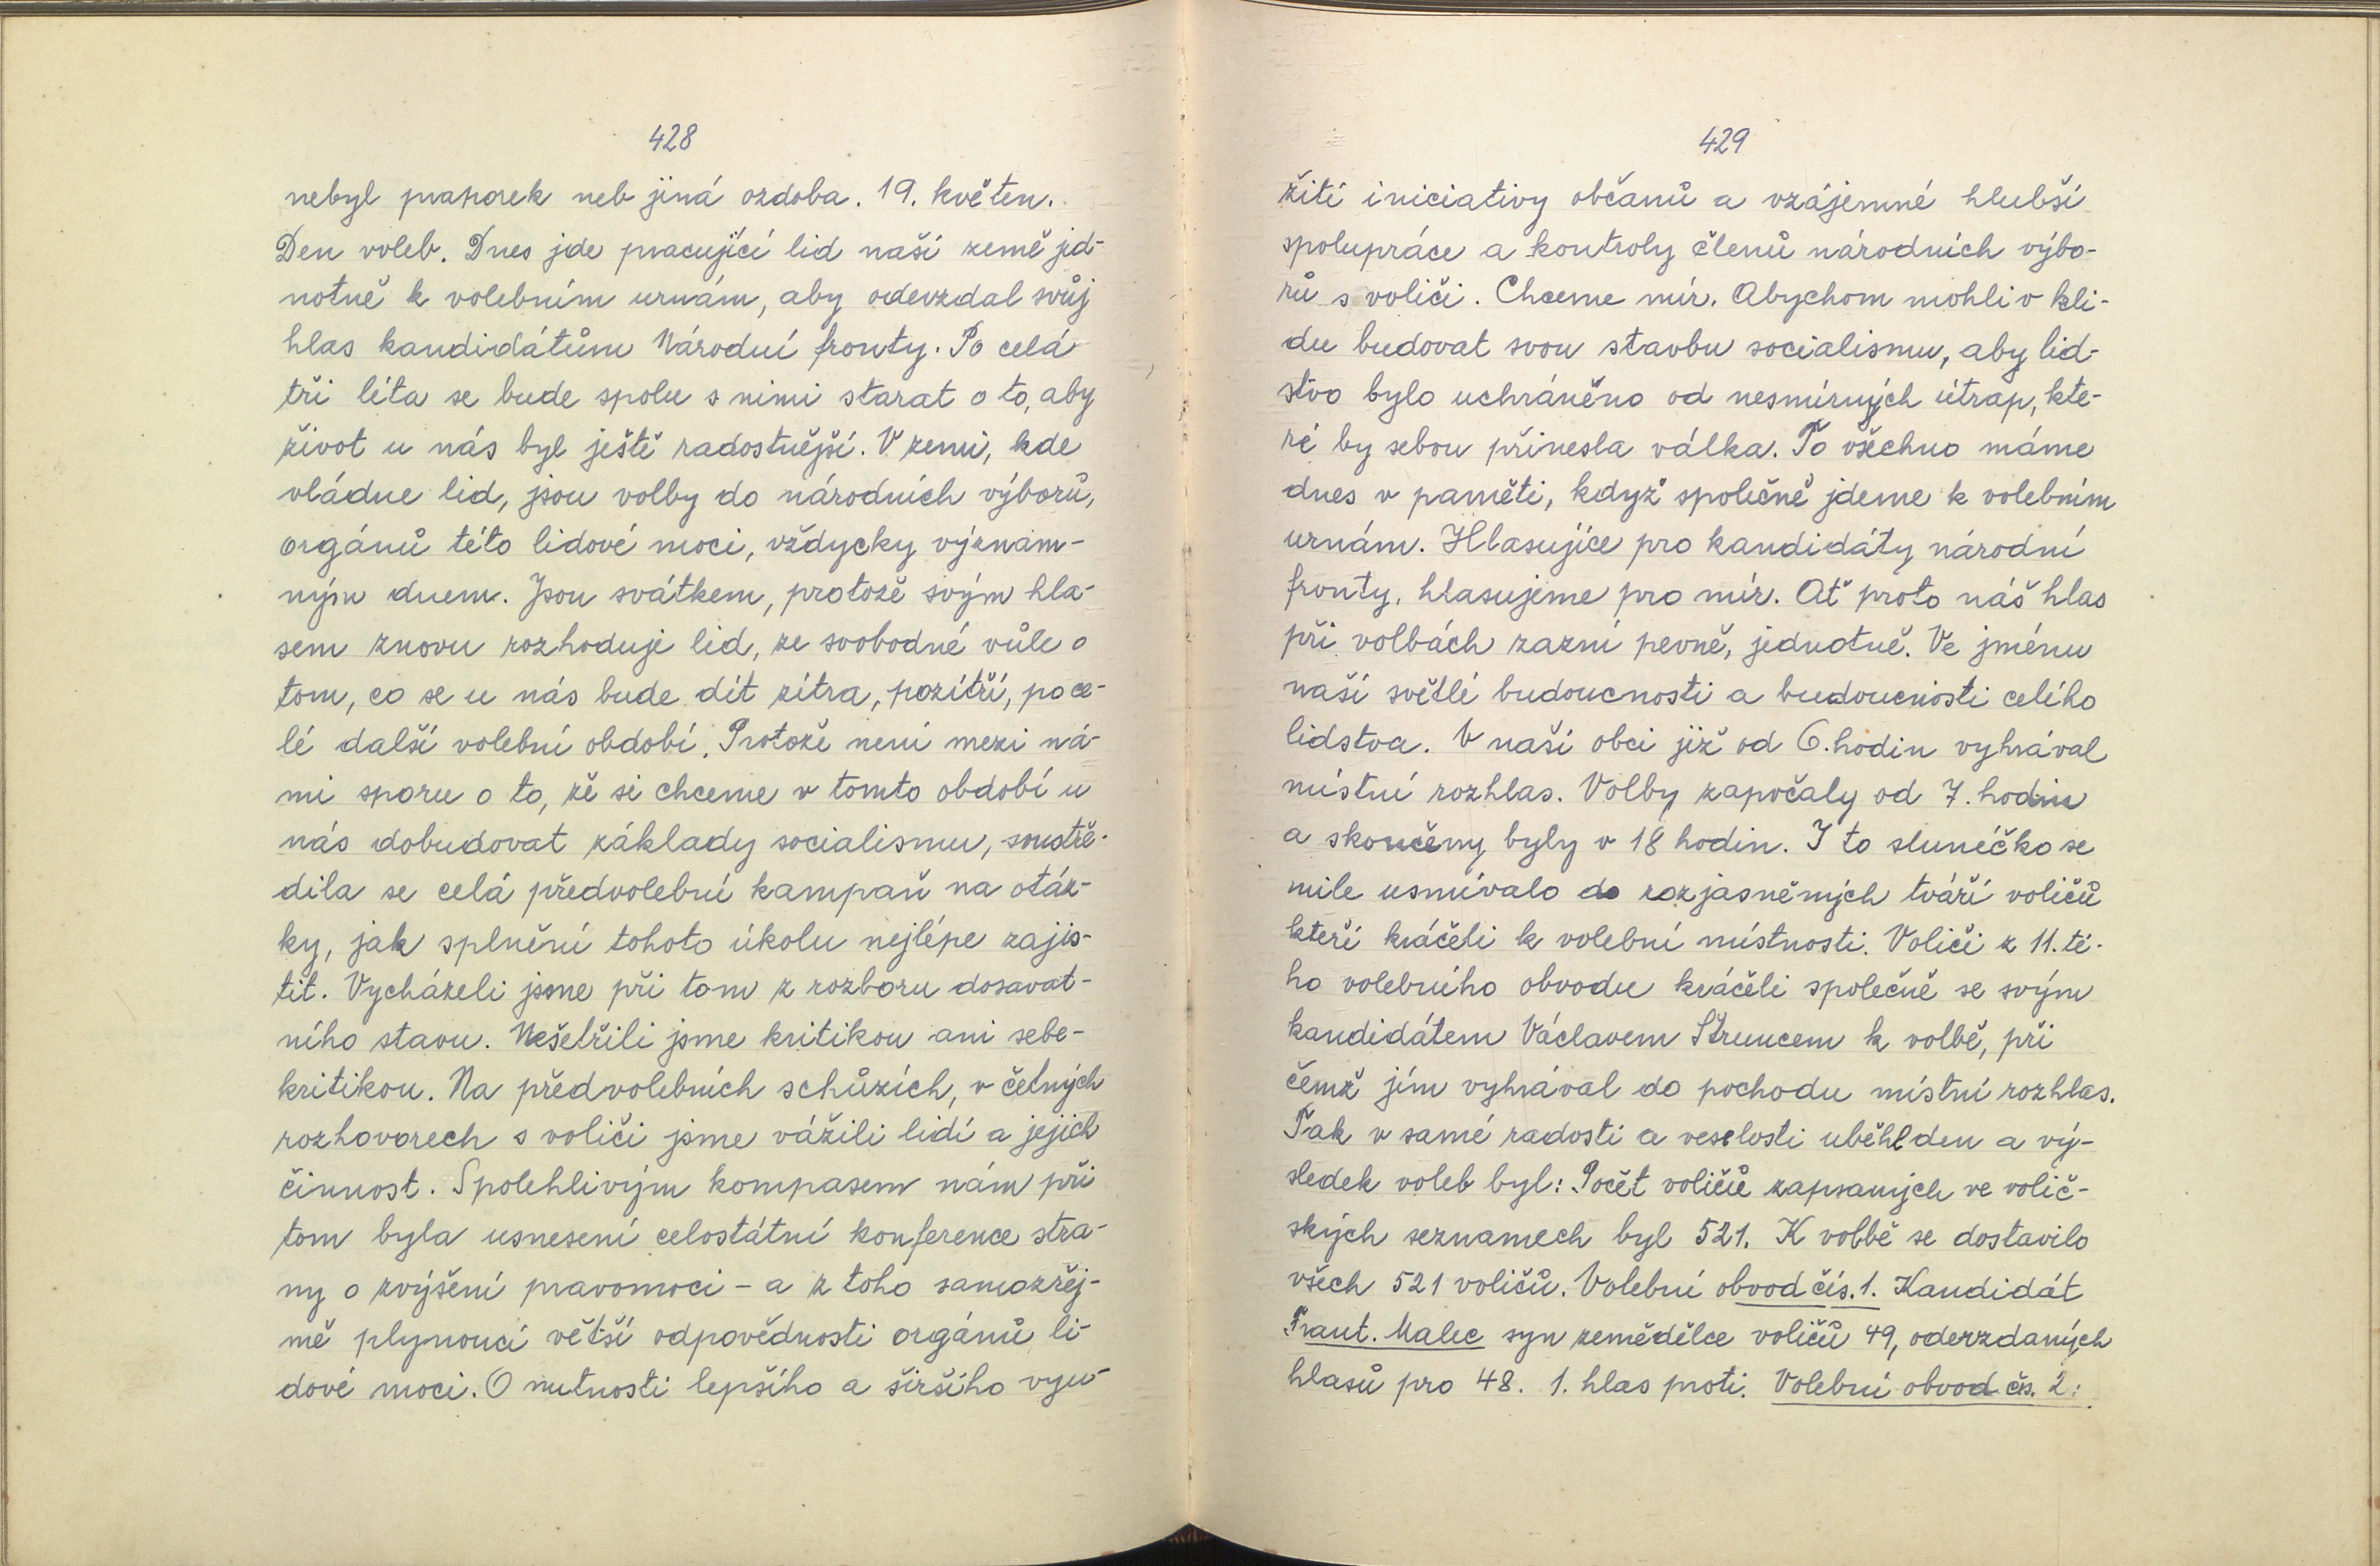 428
nebyl praporek neb jiná ozdoba. 19. květen.
Den voleb. Dnes jde pracující lid naší země jed-
notně k volebním urnám, aby odevzdal svůj
hlas kandidátům Národní fronty. Po celá
tři léta se bude spolu s nimi starat o to, aby
život u nás byl ještě radostnější. V zemi, kde
vládne lid, jsou volby do národních výborů,
orgánů této lidové moci, vždycky význam-
ným dnem. Jsou svátkem, protože svým hla-
sem znovu rozhoduje lid, ze svobodné vůle o
tom, co se u nás bude dít zítra, pozítří, po ce-
lé další volební období. Protože není mezi ná-
mi sporu o to, že si chceme v tomto období u
nás dobudovat základy socialismu, soustře-
dila se celá předvolební kampaň na otáz-
ky, jak splnění tohoto úkolu nejlépe zajis-
tit. Vycházeli jsme při tom z rozboru dosavat-
ního stavu. Nešetřili jsme kritikou ani sebe-
kritikou. Na předvolebních schůzích, v četných
rozhovorech s voliči jsme vážili lidí a jejich
činnost. Spolehlivým kompasem nám při
tom byla usnesení celostátní konference stra-
ny o zvýšení pravomoci - a z toho samozřej-
mě plynoucí větší odpovědnosti orgánů li-
dové moci. O nutnosti lepšího a širšího vyu-
429
žití iniciativy občanů a vzájemné hlubší
spolupráce a kontroly členů národních výbo-
rů s voliči. Chceme mír. Abychom mohli v kli-
du budovat svou stavbu socialismu, aby lid-
stvo bylo uchráněno od nesmírných útrap, kte-
ré by sebou přinesla válka. To všechno máme
dnes v paměti, když společně jdeme k volebním
urnám. Hlasujíce pro kandidáty národní
fronty, hlasujeme pro mír. Ať proto náš hlas
při volbách zazní pevně, jednotně. Ve jménu
naší světlé budoucnosti a budoucnosti celého
lidstva. V naší obci již od 6. hodin vyhrával
místní rozhlas. Volby započaly od 7. hodin
a skončeny byly v 18 hodin. I to sluníčko se
mile usmívalo do rozjasněných tváří voličů
kteří kráčeli k volební místnosti. Voliči z 11. té-
ho volebního obvodu kráčeli společně se svým
kandidátem Václavem Štruncem k volbě, při
čemž jím vyhrával do pochodu místní rozhlas.
Tak v samé radosti a veselosti uběhl den a vý-
sledek voleb byl: Počet voličů zapsaných ve volič-
ských seznamech byl 521. K volbě se dostavilo
všech 521 voličů. Volební obvod čís. 1. Kandidát
Frant. Malec syn zemědělce voličů 49, oderzdaných
hlasů pro 48. 1. hlas proti. Volební obvod čís. 2: